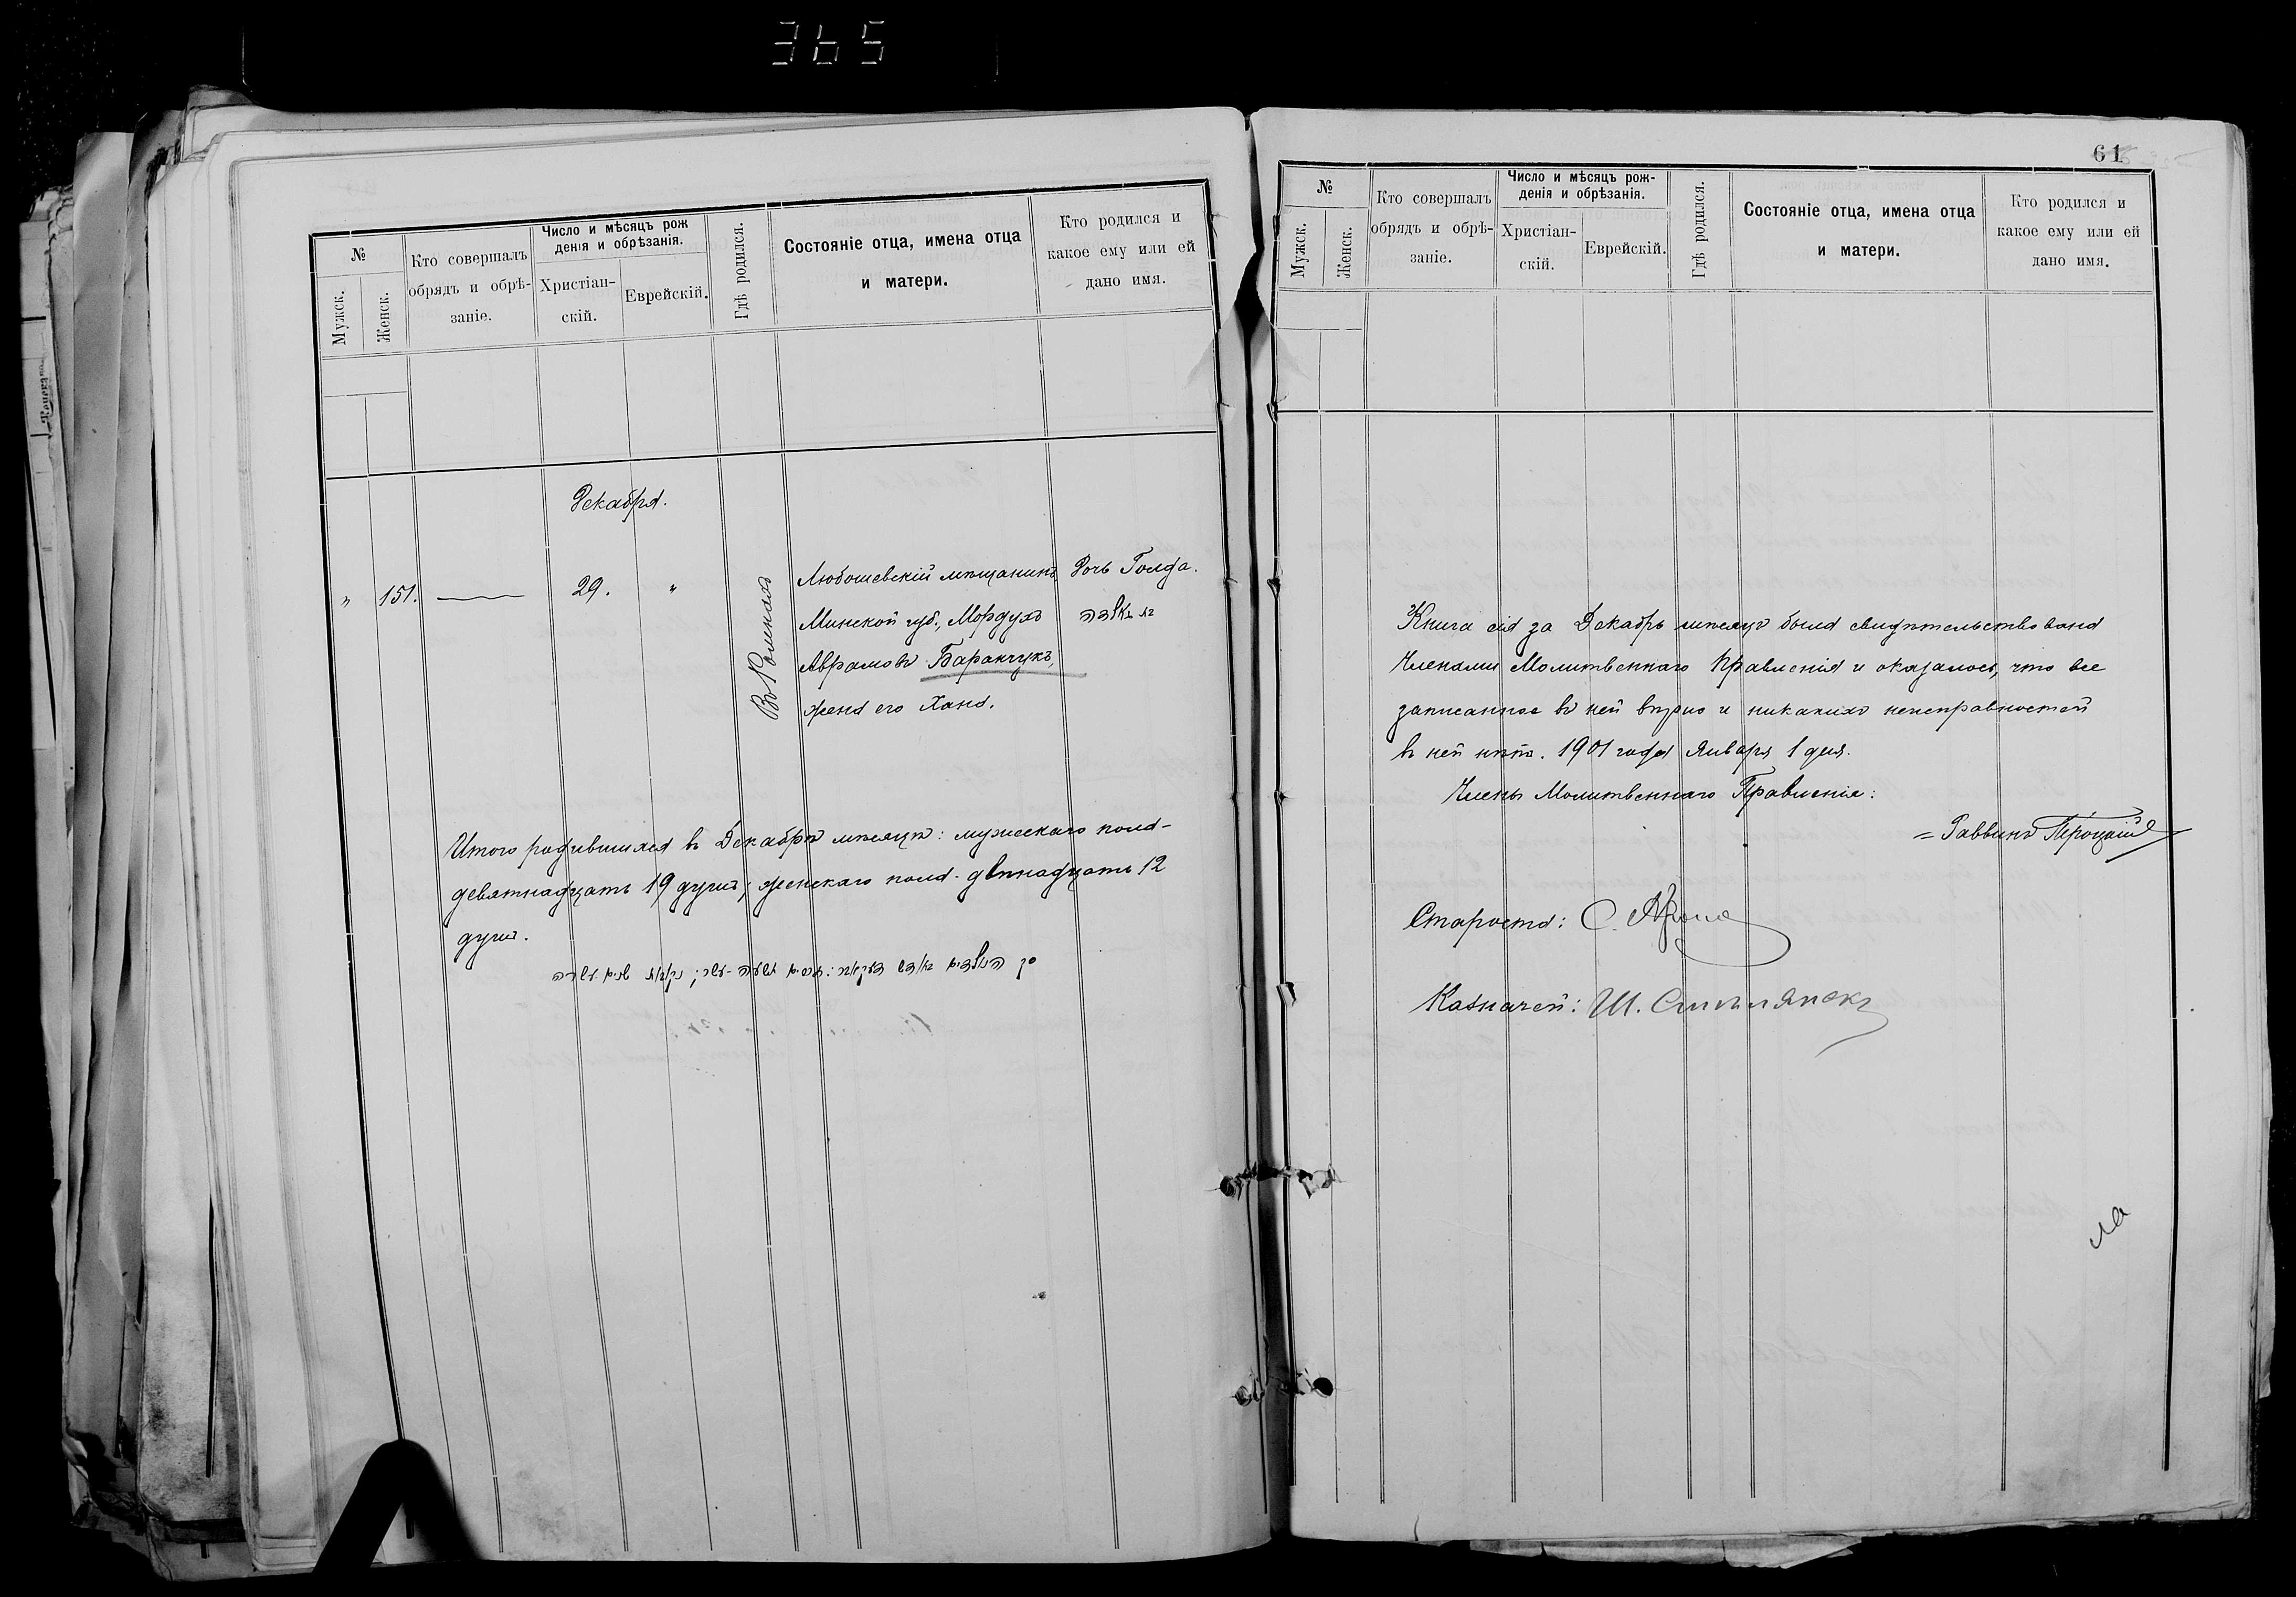 365
№
Мужск.
Женск.
Кто совершалъ
обрядъ и обрѣ-
заніе.
Число и мѣсяцъ рож
денія и обрѣзанія.
Христіан-
скій.
Еврейскій.
Гдѣ родился.
Состояніе отца, имена отца
и матери.
Кто родился и
какое ему или ей
дано имя.
Декабря.
„ 151. 29. „
Любошевскій мѣщанинъ
Минской губ., Мордухъ
Аврамовъ Баранчукъ,
жена его Хана.
Дочь Голда.
Итого родившихся въ Декабрѣ мѣсяцѣ: мужескаго пола-
девятнадцать 19 душъ; женскаго пола- двѣнадцать 12
душъ.
61
№
Мужск.
Женск.
Кто совершалъ
обрядъ и обрѣ-
заніе.
Число и мѣсяцъ рож-
денія и обрѣзанія.
Христіан-
скій.
Еврейскій.
Гдѣ родился.
Состояніе отца, имена отца
и матери.
Кто родился и
какое ему или ей
дано имя.
Книга сія за Декабрь мѣсяцъ была свидѣтельствована
Членами Молитвеннаго Правленія и оказалось, что все
записанное въ ней вѣрно и никакихъ неисправностей
въ ней нѣтъ. 1901 года Января 1 дня.
Члены Молитвеннаго Правленія:
Раввинъ
Староста: С.
Казначей: Ш.